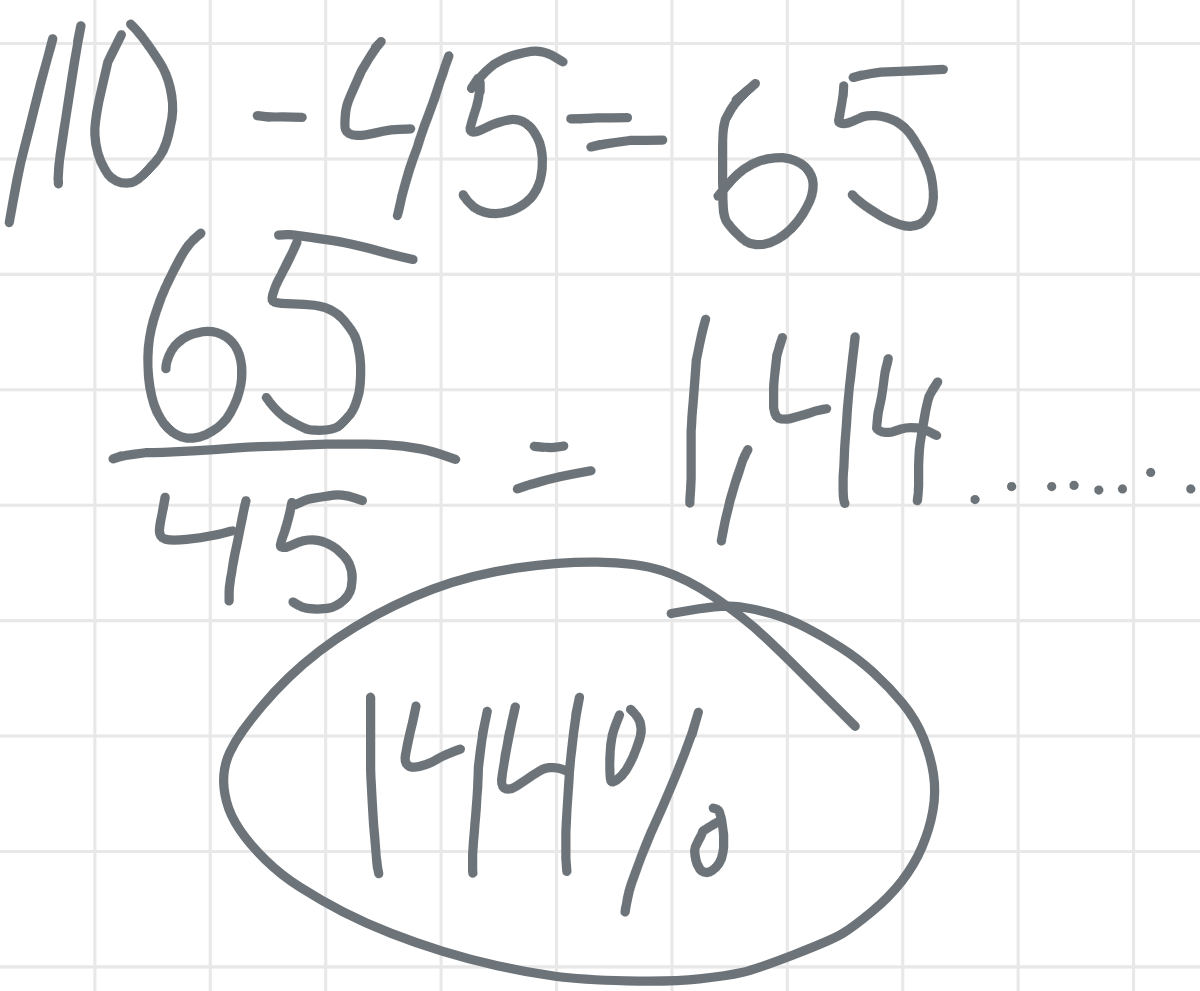 110 - 45 = 65
65
45
= 1,44........
144%